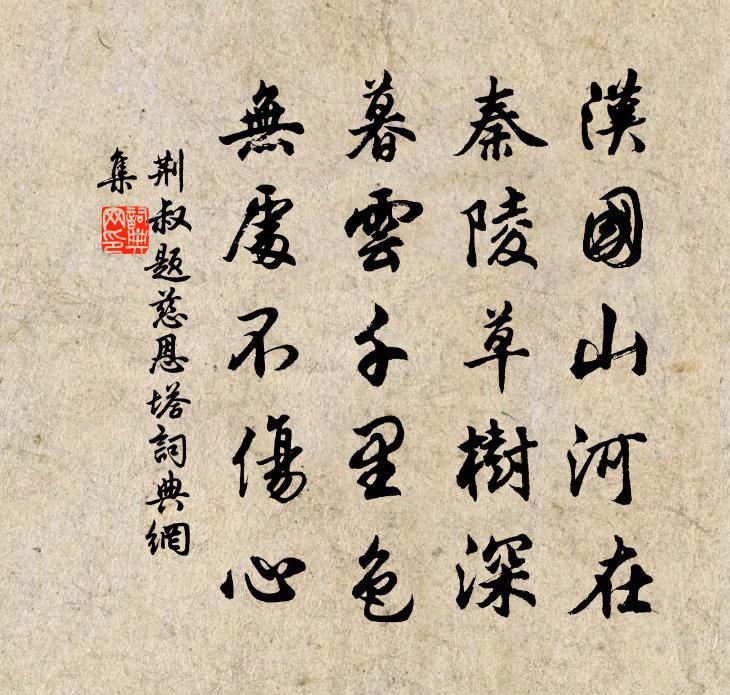 漢國山河在
秦陵草樹深
暮雲千里色
無處不傷心
荆叔题慈恩塔詞典網
集
詞典
网印